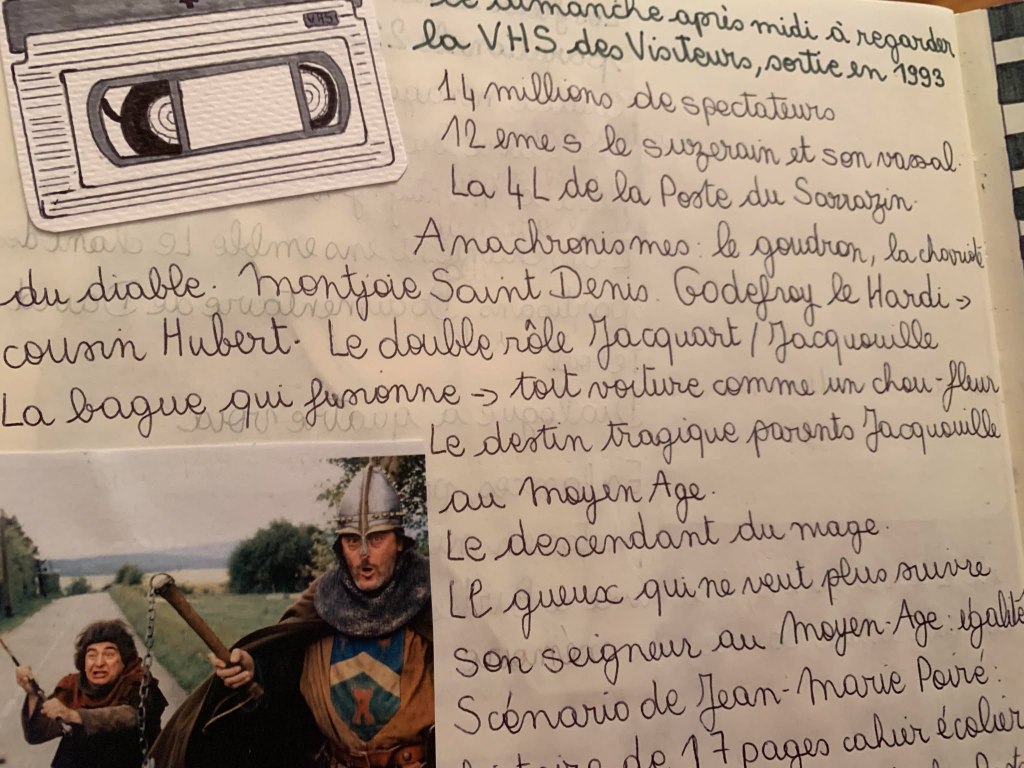 VHS
dimanche après midi à regarder
la VHS des Visiteurs, sortie en 1993
14 millions de spectateurs
12 eme s le suzerain et son vassal.
La 4L de la Poste du Sarrazin.
Anachronismes: le goudron, la
du diable. Montjoie Saint Denis. Godefroy le Hardi →
cousin Hubert. Le double rôle Jacquart / Jacquouille
La bague qui fusionne → toit voiture comme un chou-fleur
Le destin tragique parents Jacquouille
au Moyen Age.
Le descendant du mage.
LE gueux qui ne veut plus suivre
son seigneur au Moyen-Age: égalité
Scénario de Jean-Marie Poiré:
de 17 pages cahier écolier